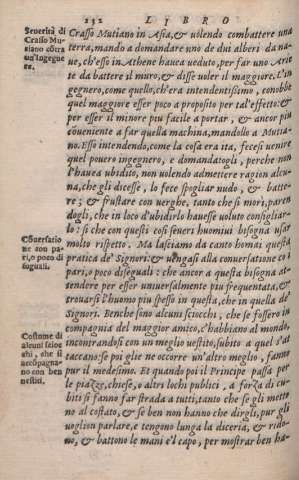 232 LIBRO
Severità di
Crasso Mu
tiano cōtra
un'Ingegne
re.
Crasso Mutiano in Asia, & volendo combattere una
terra, mandò a domandare uno de dui alberi da na-
ve, ch'esso in Athene havea veduto, per far uno Arie
te da battere il muro, & disse voler il maggiore. L'in
gegnero, come quello, ch'era intendentissimo, conobbe
quel maggiore esser poco a proposito per tal'effetto: &
per esser il minore piu facile a portar, & ancor piu
cōveniente a far quella machina, mandollo a Mutia-
no. Esso intendendo, come la cosa era ita, fecesi venire
quel povero ingegnero, e domandatogli, perche non
l'havea ubidito, non volendo admettere ragion alcu-
na, che gli dicesse, lo fece spogliar nudo, & batte-
re; & frustare con verghe, tanto che si morì, paren
dogli, che in loco d'ubidirlo havesse voluto consigliar-
lo: si che con questi così severi huomiui bisogna usar
molto rispetto. Ma lasciamo da canto homai questa
pratica de' Signori: & vengasi alla conversatione co i
pari, o poco diseguali: che ancor a questa bisogna at-
tendere per esser universalmente piu frequentata, &
trovarsi l'huomo piu spesso in questa, che in quella de'
Signori. Benche sono alcuni sciocchi, che se fossero in
compagnia del maggior amico, c'habbiano al mondo,
incontrandosi con un meglio vestito, subito a quel s'at
taccano: se poi glie ne occorre un'altro meglio, fanno
pur il medesimo. Et quando poi il Principe passa per
le piazze, chiese, o altri lochi publici, a forza di cu-
biti si fanno far strada a tutti, tanto che se gli metto
no al costato, & se ben non hanno che dirgli, pur gli
voglion parlare, e tengono lunga la diceria, & rido-
no, & battono le mani e'l capo, per mostrar ben ha-
Cōversatio
ne con pa-
ri, o poco di
suguali.
Costume di
alcuni scioc
chi, che si
accōpagna-
no con ben
vestiti.